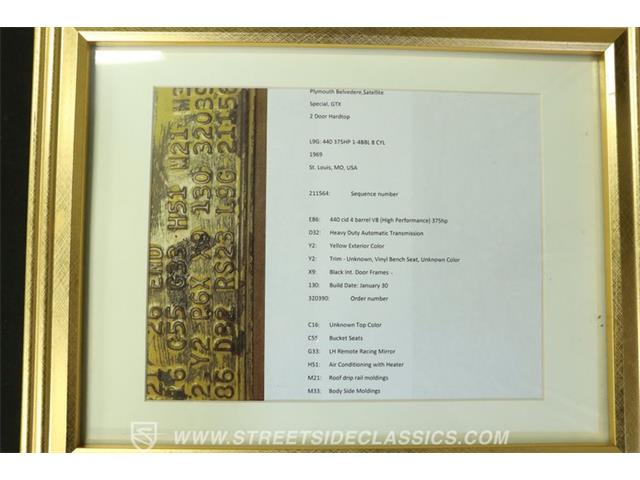 Plymouth Belvedere,Satellite
Special, GTX
2 Door Hardtop
L9G: 440 375HP 1-4BBL 8 CYL
1969
St. Louis, MO, USA
211564: Sequence number
E86: 440 cid 4 barrel V8 (High Performance) 375hp
D32: Heavy Duty Automatic Transmission
Y2: Yellow Exterior Color
Y2: Trim - Unknown, Vinyl Bench Seat, Unknown Color
X9: Black Int. Door Frames -
130: Build Date: January 30
320390: Order number
C16: Unknown Top Color
C55 Bucket Seats
G33: LH Remote Racing Mirror
H51: Air Conditioning with Heater
M21: Roof drip rail moldings
M33: Body Side Moldings
26 END
C55 G33 H51 M21
Y2 X9 130 32039
86 RS23 L9G 21156
WWW.STREETSIDECLASSICS.COM